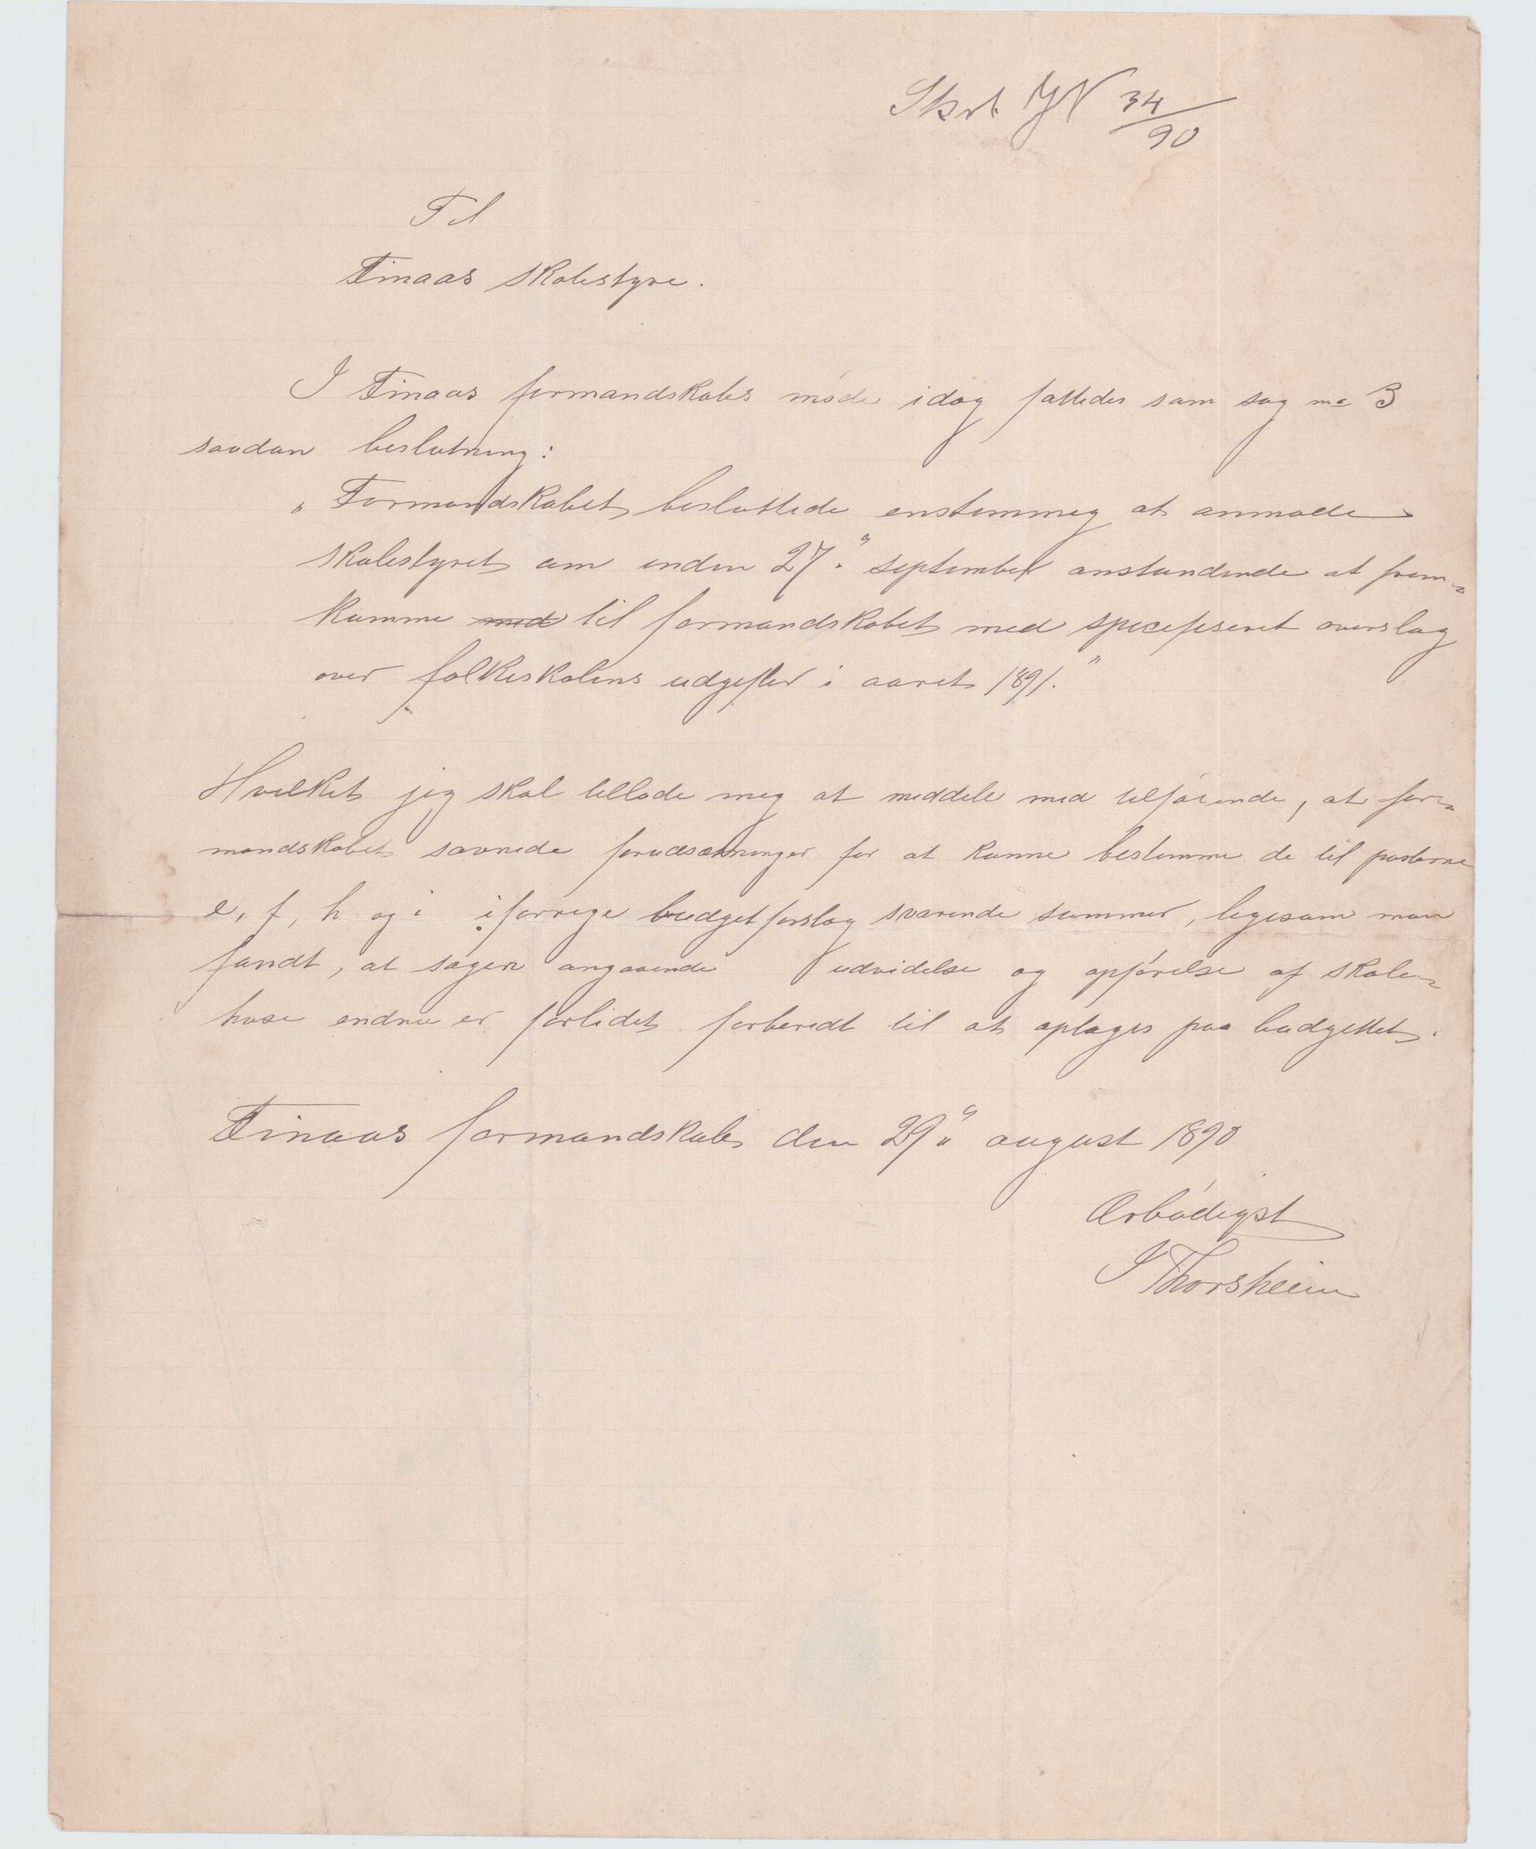 Skst JN 34/90
Til
Finaas skolestyre.
I Finaas formandskabs møde idag fattedes som sag no 3
saadan beslutning:
„Formandskabet besluttede enstemmig at anmode
skolestyret om inden 27." september anstundende at frem-
komme med til formandskabet med specefiseret overslag
over folkeskolens udgifter i aaret 1891."
Hvilket jeg skal tillade mig at meddele med tilføiende, at for-
mandskabet savnede forudsætninger for at kunne bestemme de til posterne
e, f, h og i i forrige budgetforslag svarende summer, ligesom man
fandt, at sagen angaaende udvidelse og opførelse af skole-
huse endnu er forlidet forberedt til at optages paa budgettet.
Finaas formandskab den 29" august 1890
Ærbødigst
J Thorsheim